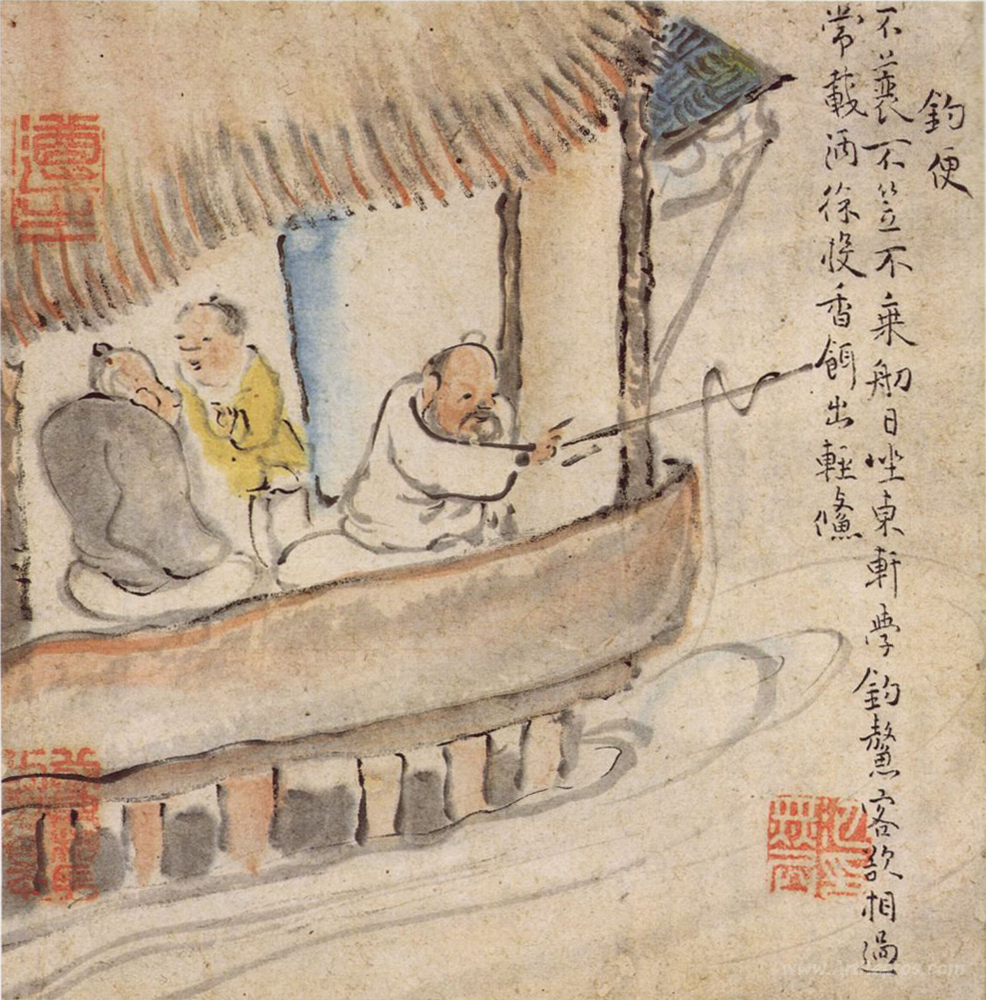 釣便
不蓑不笠不乗舠日坐東軒斈釣鰲客欲相過
常載酒徐投香餌出輕鯈